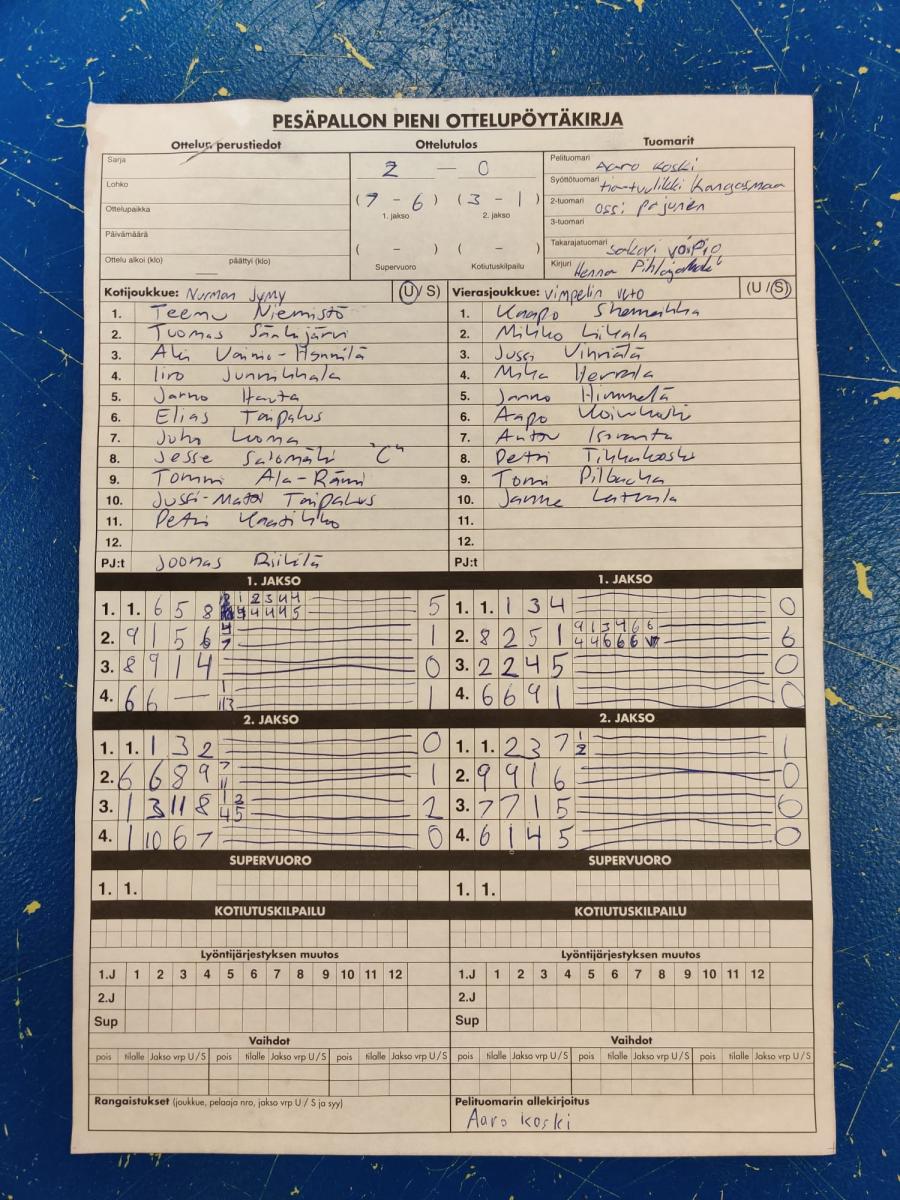 PESÄPALLON PIENI OTTELUPÖYTÄKIRJA
Ottelun perustiedot
Sarja
Lohko
Ottelupaikka
Päivämäärä
Ottelu alkoi (klo) päättyi (klo)
Ottelutulos
2 — 0
( 7 - 6 ) ( 3 - 1 )
1. jakso 2. jakso
( - ) ( - )
Supervuoro Kotiutuskilpailu
Tuomarit
Pelituomari Aaro Koski
Syöttötuomari Kangasmaa
2-tuomari Ossi Pajunen
3-tuomari
Takarajatuomari Sakari Voipio
Kirjuri Henna
Kotijoukkue: Nurmon Jymy (U/ S)
1. Teemu Niemistö
2. Tuomas Sänkijärvi
3. Aki Vainio-Hynnilä
4. Iiro Junnikkala
5. Jarno Hauta
6. Elias Taipalus
7. Juho Luoma
8. Jesse Salomäki "C"
9. Tommi Ala-Rämi
10. Jussi-Matti Taipalus
11. Petri Kaatikko
12.
PJ:t Joonas Riihilä
Vierasjoukkue: Vimpelin Veto (U / S)
1. Kaapo Shemeikka
2. Mikko Likala
3. Jussi Vihriälä
4. Mika Herrala
5. Janno Himmelä
6. Aapo Koivukoski
7. Anton Isoranta
8. Petri Tikkakoski
9. Tomi Pilbacka
10. Janne Latvala
11.
12.
PJ:t
1. JAKSO
1. 1. 6 5 8 5
2. 9 1 5 6 1
3. 8 9 1 4 0
4. 6 6 — 1
1. JAKSO
1. 1. 1 3 4 0
2. 8 2 5 1 9 1 3 4 6 6 6
4 4 6 6 6
3. 2 2 4 5 0
4. 6 6 9 1 0
2. JAKSO
1. 1. 1 3 2 0
2. 6 6 8 9 7 1
11
3. 1 3 11 8 1 2 2
4 5
4. 1 10 6 7 0
2. JAKSO
1. 1. 2 3 7 1 1
2
2. 9 9 1 6 0
3. 7 7 1 5 0
4. 6 1 4 5 0
SUPERVUORO
1. 1.
SUPERVUORO
1. 1.
KOTIUTUSKILPAILU
KOTIUTUSKILPAILU
Lyöntijärjestyksen muutos
1.J 1 2 3 4 5 6 7 8 9 10 11 12
2.J
Sup
Lyöntijärjestyksen muutos
1.J 1 2 3 4 5 6 7 8 9 10 11 12
2.J
Sup
Vaihdot
pois tilalle Jakso vrp U / S pois tilalle Jakso vrp U / S pois tilalle Jakso vrp U / S
Vaihdot
pois tilalle Jakso vrp U / S pois tilalle Jakso vrp U / S pois tilalle Jakso vrp U / S
Rangaistukset (joukkue, pelaaja nro, jakso vrp U / S ja syy)
Pelituomarin allekirjoitus
Aaro Koski